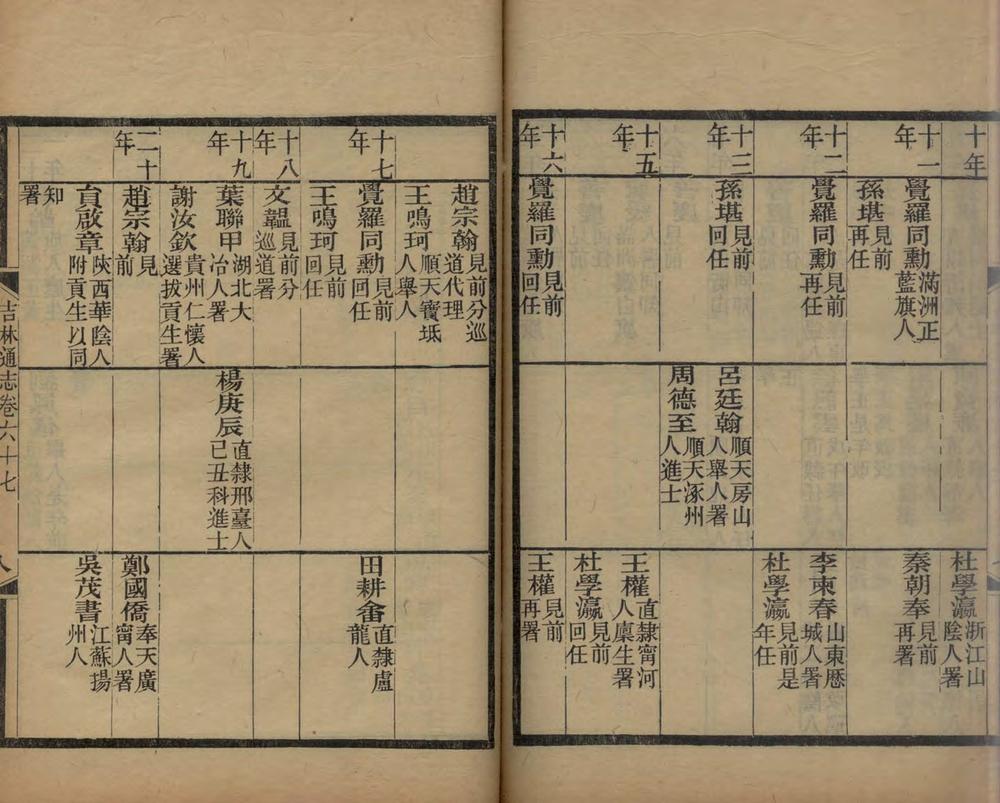 十年
杜學瀛浙江山陰人署
十一年
覺羅同勳滿洲正藍旗人
秦朝奉見前再署
孫堪見前再任
十二年
覺羅同勳見前再任
李東春山東歷城人署
杜學瀛見前是年任
十三年
孫堪見前回任
呂廷翰順天房山人舉人署
周德至順天涿州人進士
十五年
王權直隸甯河人廩生署
杜學瀛見前回任
十六年
覺羅同勳見前回任
王權見前再署
趙宗翰見前分巡道代理
王鳴珂順天寶坻人舉人
十七年
覺羅同勳見前回任
田耕畬直隸盧龍人
王鳴珂見前回任
十八年
文韞見前分巡道署
十九年
葉聯甲湖北大冶人署
楊庚辰直隸邢臺人己丑科進士
謝汝欽貴州仁懷人選拔貢生署
二十年
趙宗翰見前
鄭國僑奉天廣甯人署
啟章陝西華陰人附貢生以同
吳茂書江蘇揚州人
知署
吉林通志卷六十七
八